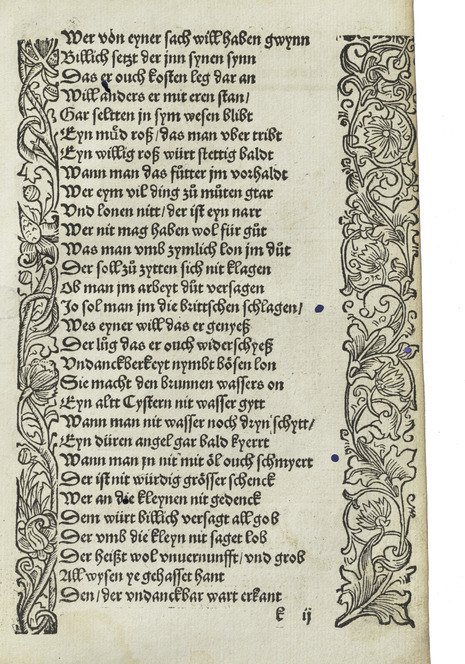 Wer von eyner sach will haben gwynn
Billich setzt der jnn synen synn
Das er ouch kosten leg dar an
Will anders er mit eren stan/
Gar seltten jn sym wesen blibt
Eyn muͤd roß/ das man vber tribt
Eyn willig roß würt stettig baldt
Wann man das fůtter jm vorhaldt
Wer eym vil ding zů můten gtar
Vnd lonen nitt/ der ist eyn narr
Wer nit mag haben wol für gůt
Was man vmb zymlich lon jm důt
Der soll zů zytten sich nit klagen
Ob man jm arbeyt důt versagen
Jo sol man jm die brittschen schlagen/
Wes eyner will das er genyeß
Der lůg das er ouch widerschyeß
Vndanckberkeyt nymbt bösen lon
Sie macht den brunnen wassers on
Eyn altt Cystern nit wasser gytt
Wann man nit wasser noch dryn schytt/
Eyn düren angel gar bald kyerrt
Wann man jn nit mit öl ouch schmyert
Der ist nit würdig grösser schenck
Wer an die kleynen nit gedenck
Dem würt billich versagt all gob
Der vmb die kleyn nit saget lob
Der heißt wol vnuernunfft/ vnd grob
All wysen ye gehasset hant
Den/ der vndanckbar wart erkant
k ij